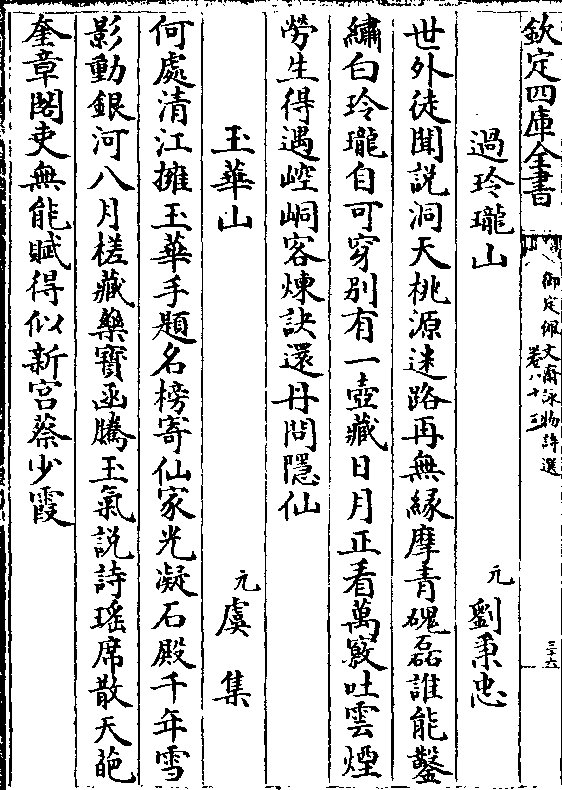 欽定四庫全書
御定佩文齋詠物詩選
卷八十三
三十六
過玲瓏山
元
劉秉忠
世外徒聞說洞天桃源迷路再無緣摩青磈磊誰能鑿
繡白玲瓏自可穿別有一壺藏日月正看萬竅吐雲煙
勞生得遇崆峒客煉訣還丹問隱仙
玉華山
元
虞集
何處清江擁玉華手題名榜寄仙家光凝石殿千年雪
影動銀河八月槎藏藥寶函騰玉氣說詩瑤席散天葩
奎章閣吏無能賦得似新宮蔡少霞